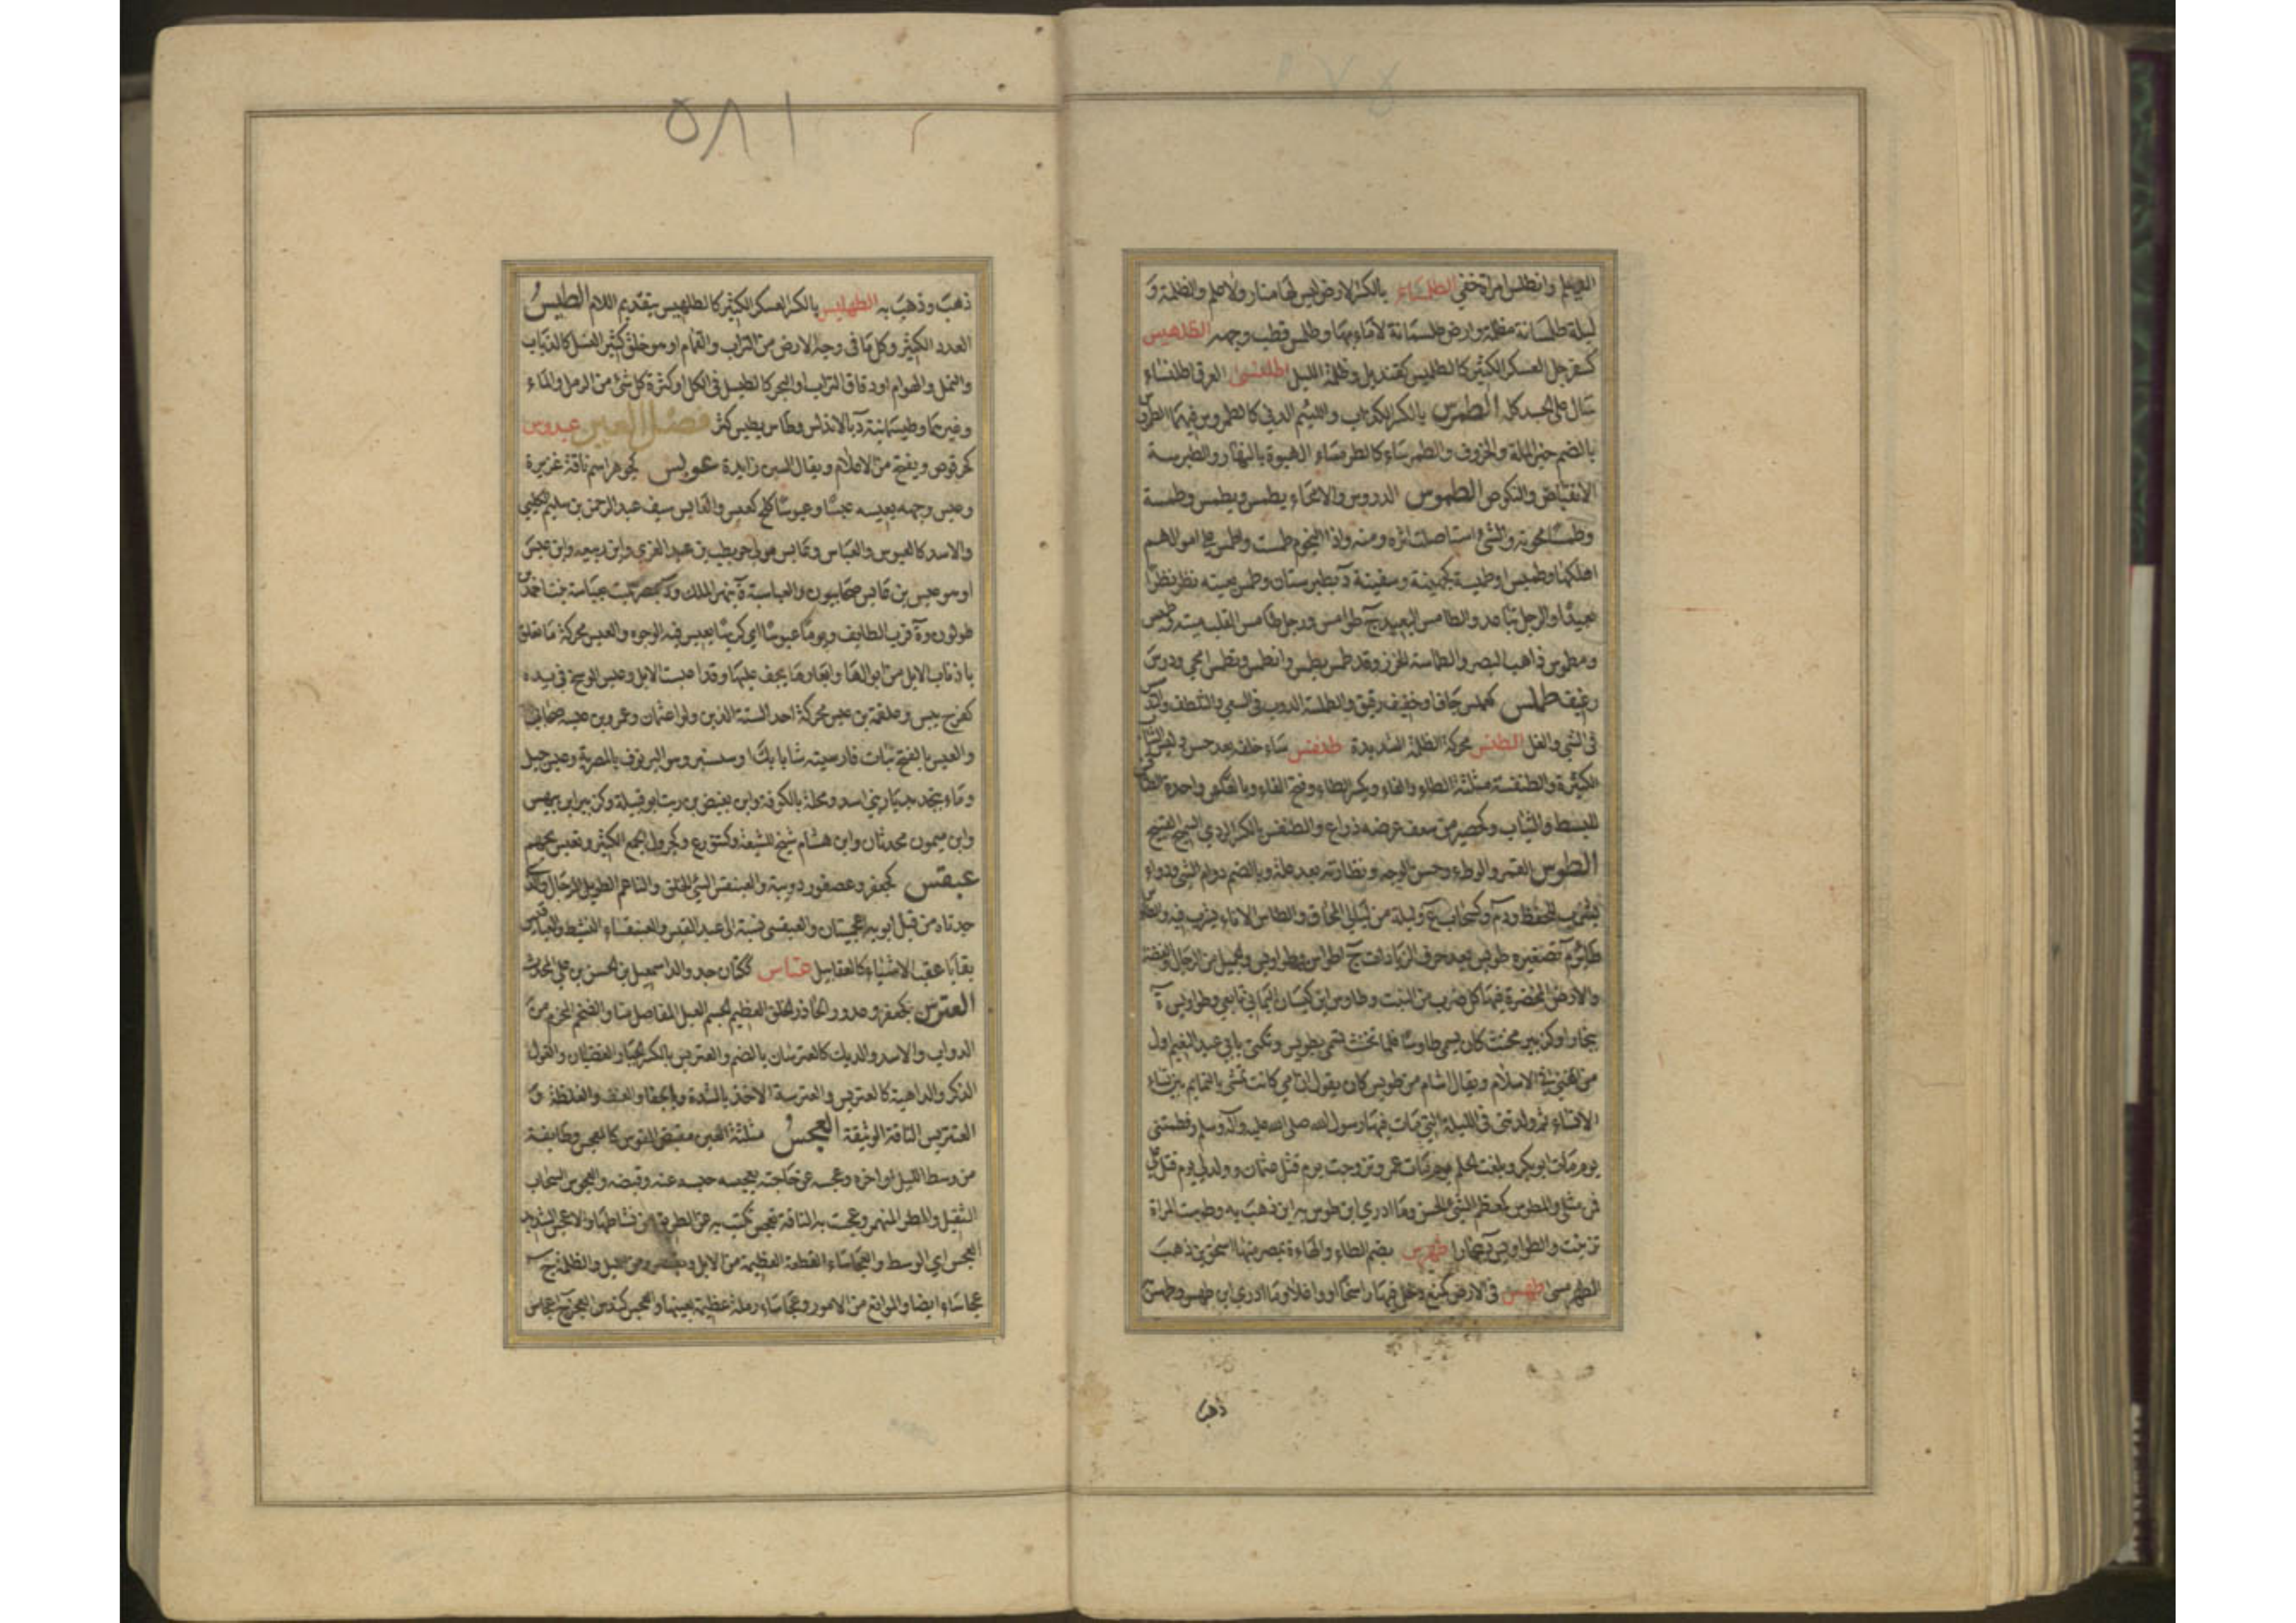 الطلمساء بالكسر الارض ليس بها منار ولا علم والظلمة و
ليلة طلمسانة مظلمة وارض طلمسانة لا ماء بها وطلمس قطب وجهه الطلهيس
العسكر الكثير كالطلميس كقنديل وظلمة الليل اطلنسى العرق اطلنساء
سال على الجسد كله الطمرس بالكسر الكذاب واللئيم الدني كالطمروس فيهما
بالضم خبز الملة والخروف والطمرساء كالطرمساء الهبوة بالنهار والطمرسة
الانقباض والنكوص الطموس الدروس والامحاء يطمس ويطمس وطمسة
وطمسا محوته والشئ استاصلت اثره ومنه واذا النجوم طمست واطمس على اموالهم
اهلكها وطميس او طميسة كجهينة وسفينة د بطبرستان وطمس بعينه نظر نظرا
بعيدا والرجل تباعد والطامس البعيد ج طوامس ورجل طامس القلب ميته
ومطموس ذاهب البصر والطماسة الحزر وقد طمس يطمس وانطمس وتطمس امحى ودرس
رغيف طملس كعملس جاف او خفيف رقيق والطملسة الدوب في السعي والتلطف
في الشئ والغل الطنس محركة الظلمة الشديدة طنفس ساء خلقه بعد حسن ولبس الثياب
الكثيرة والطنفسة مثلثة الطاء والفاء وبكسر الطاء وفتح الفاء وبالعكس واحدة
للبسط والثياب وكحصير من سعف عرضه ذراع والطنفس بالكسر الردي السمج القبيح
الطوس القمر والوطء وحسن الوجه ونظارته بعد علة وبالضم دوام الشئ ودواء
يشرب للحفظ ود م وكسحاب ع وليلة من ليالي المحاق والطاس الاناء يشرب فيه
طائر م تصغيره طويس بعد حذف الزيادات ج اطواس وطواويس والجميل من الرجال والفضة
والارض المخضرة فيها كل ضرب من النبت وطاوس ابن كيسان اليماني تابعي وطواويس ة
ببخارا وكزبير مخنث كان يسمى طاوسا فلما تخنث تسمى بطويس وتكنى بابي عبد النعيم اول
من غنى في الاسلام ويقال اشام من طويس كان يقول ان امي كانت تمشي بالنمايم بين نساء
الانصار ثم ولدتني في الليلة التي مات فيها رسول الله صلى الله عليه وآله وسلم وفطمتني
يوم مات ابو بكر وبلغت الحلم يوم مات عمر وتزوجت يوم قتل عثمان وولد لي يوم قتل علي
فمن مثلي والمطوس كمعظم الشئ الحسن وما ادري اين طوس به اين ذهب به وطوست المراة
تزينت والطواويس ة ببخارا طهرمس بضم الطاء والهاء ة بمصر منها اسحق بن ذهب
الطهرمسي طهس في الارض كمنع دخل فيها راسخا او واغلا وما ادري اين طهس وطهس
ذهب
٥٨١
ذهب وذهب به الطهليس بالكسر العسكر الكثير كالطلهيس بتقديم اللام الطيس
العدد الكثير وكل ما في وجه الارض من التراب والقمام او هو خلق كثير النسل كالذباب
والنمل والهوام او دقاق التراب او البحر كالطيسل في الكل او كثرة كل شئ من الرمل والماء
وغيرهما وطيسمانية د بالاندلس وطاس يطيس كثر فصل العين عبدوس
كحرقوص ويفتح من الاعلام ويقال السين زايدة عوبس كجوهر اسم ناقة غزيرة
وعبس وجهه يعبسه عبسا وعبوسا كلح كعبس والعابس سيف عبد الرحمن بن سليم الكلبي
والاسد كالعبوس والعباس وعابس مولى حويطب بن عبد العزي وابن ربيعة وابن عبس
او هو عبس بن عابس صحابيون والعباسية ة بنهر الملك ود بمصر سميت بعباسة بنت احمد بن
طولون وة قرب الطايف ويوما عبوسا اي كريها يعبس فيه الوجوه والعبس محركة ما تعلق
باذناب الابل من ابوالها وابعارها يجف عليها وقد اعبست الابل وعبس الوسخ في يده
كفرح يبس وعلقمة بن عبس محركة احد الستة الذين ولوا عثمان وعمرو بن عبسة صحابي
والعبس بالفتح نبات فارسيته شابابك او سيسنبر وهو البرنوف بالمصرية وعبس جبل
وماء بنجد بديار بني اسد ومحلة بالكوفة وابن بغيض بن ريث ابو قبيلة وكزبير ابن بيهس
وابن ميمون محدثان وابن هشام شيخ للشيعة وكتنور ع وكجرول الجمع الكثير وتعبس تجهم
عبقس كجعفر وعصفور دويبة والعبنقس السئ الخلق والناعم الطويل من الرجال والذي
جدتاه من قبل ابويه اعجميتان والعبقسي نسبة الى عبد القيس والعبنقساء النشيط والعباقيس
بقايا عقب الاشياء كالعقابيل عتاس ككتان جد والد اسمعيل بن الحسن بن علي المحدث
العترس كجعفر وعذور الحادر الخلق العظيم الجسم العبل المفاصل منا والضخم المحزم من
الدواب والاسد والديك كالعترسان بالضم والعتريس بالكسر الجبار والغضبان والغول
الذكر والداهية كالعتريس والعترسة الاخذ بالشدة وبالجفاء والعنف والغلظة و
العنتريس الناقة الوثيقة العجس مثلثة العين مقبض القوس كالمعجس وطايفة
من وسط الليل او اخره وعجسه عن حاجته يعجسه حبسه عنه وقبضه والعجوس السحاب
الثقيل والمطر المنهمر وعجست به الناقة تعجس نكبت به عن الطريق من نشاطها والاعجس الشديد
العجس اي الوسط والعجاساء القطعة العظيمة من الابل والظلمة ج
عجاساء ايضا والموانع من الامور وعجاساء رملة عظيمة بعينها والعجس كندس العجز ج اعجاس